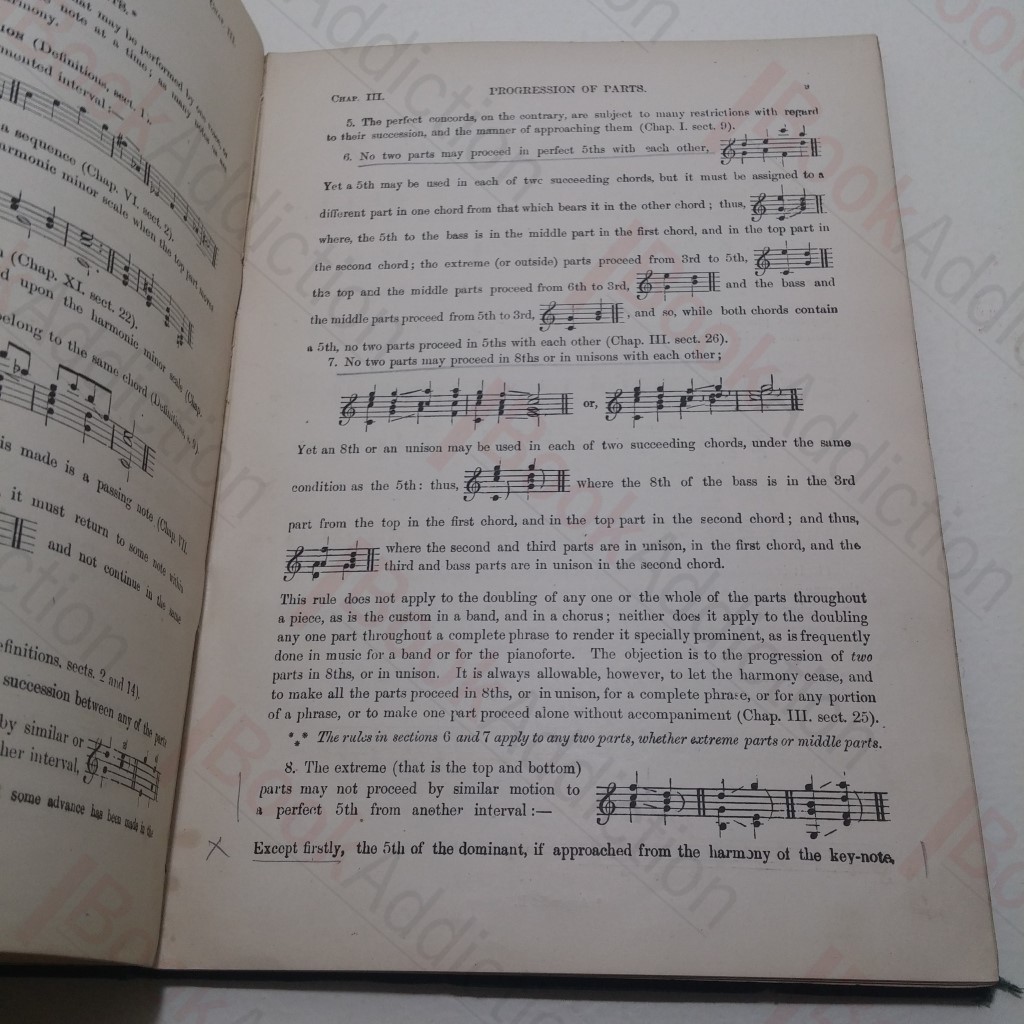 TB.*
may be performed by one
note at a time; as many
rmony.
ION (Definitions, sect.
mented interval:—
a sequence (Chap. VI. sect. 2).
armonic minor scale when the top part moves
(Chap. XI. sect. 22).
d upon the harmonic minor scale (Chap.
belong to the same chord (Definitions, s. 9)
is made is a passing note (Chap. VII.
it must return to some note within
and not continue in the same
efinitions, sects. 2 and 14).
succession between any of the parts
by similar or
her interval,
some advance has been made in the
Chap. III.
PROGRESSION OF PARTS.
9
5. The perfect concords, on the contrary, are subject to many restrictions with regard
to their succession, and the manner of approaching them (Chap. I. sect. 9).
6. No two parts may proceed in perfect 5ths with each other,
Yet a 5th may be used in each of two succeeding chords, but it must be assigned to a
different part in one chord from that which bears it in the other chord; thus,
where, the 5th to the bass is in the middle part in the first chord, and in the top part in
the second chord; the extreme (or outside) parts proceed from 3rd to 5th,
the top and the middle parts proceed from 6th to 3rd, and the bass and
the middle parts proceed from 5th to 3rd, , and so, while both chords contain
a 5th, no two parts proceed in 5ths with each other (Chap. III. sect. 26).
7. No two parts may proceed in 8ths or in unisons with each other;
or,
Yet an 8th or an unison may be used in each of two succeeding chords, under the same
condition as the 5th: thus, where the 8th of the bass is in the 3rd
part from the top in the first chord, and in the top part in the second chord; and thus,
where the second and third parts are in unison, in the first chord, and the
third and bass parts are in unison in the second chord.
This rule does not apply to the doubling of any one or the whole of the parts throughout
a piece, as is the custom in a band, and in a chorus; neither does it apply to the doubling
any one part throughout a complete phrase to render it specially prominent, as is frequently
done in music for a band or for the pianoforte. The objection is to the progression of two
parts in 8ths, or in unison. It is always allowable, however, to let the harmony cease, and
to make all the parts proceed in 8ths, or in unison, for a complete phrase, or for any portion
of a phrase, or to make one part proceed alone without accompaniment (Chap. III. sect. 25).
*** The rules in sections 6 and 7 apply to any two parts, whether extreme parts or middle parts.
8. The extreme (that is the top and bottom)
parts may not proceed by similar motion to
a perfect 5th from another interval:—
Except firstly, the 5th of the dominant, if approached from the harmony of the key-note,